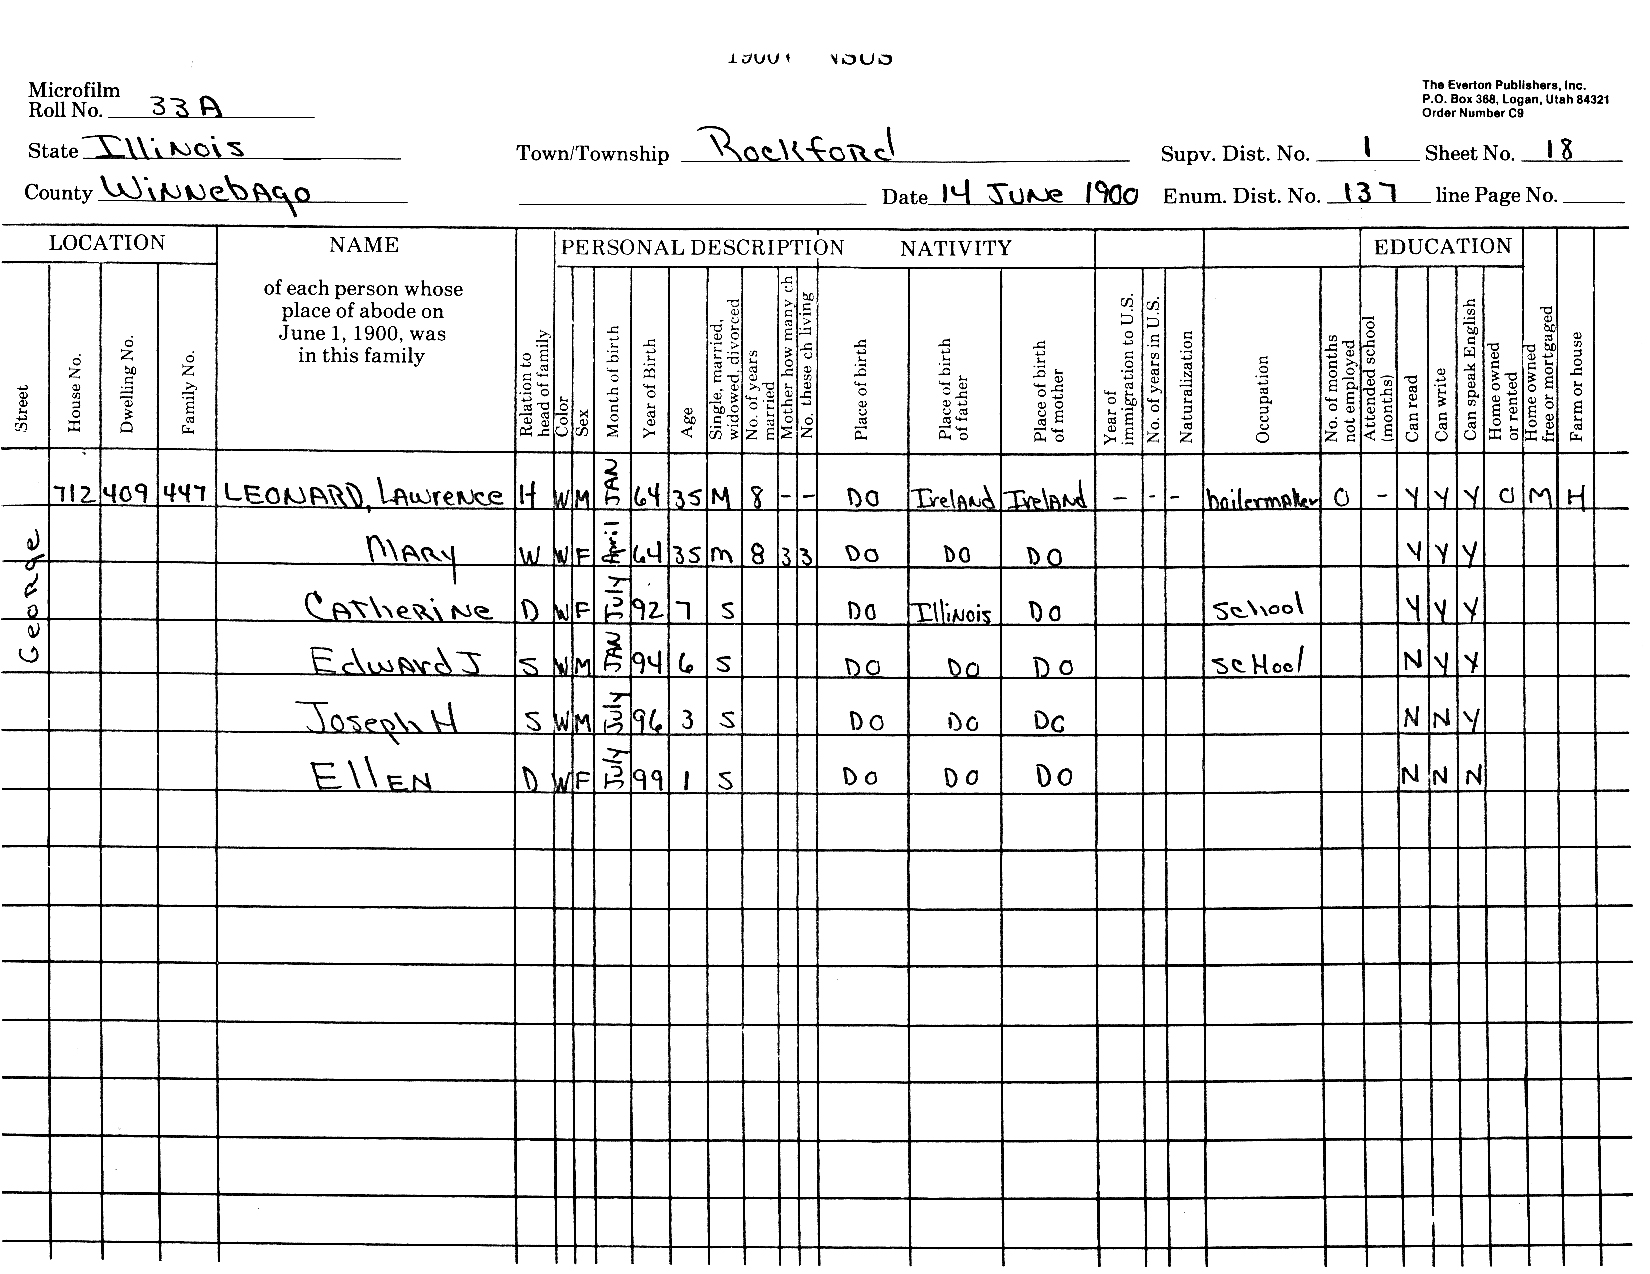 Microfilm
Roll No. 33A
The Everton Publishers, Inc.
P.O. Box 368, Logan, Utah 84321
Order Number C9
State Illinois Town/Township Rockford Supv. Dist. No. 1 Sheet No. 18
County Winnebago Date 14 June 1900 Enum. Dist. No. 137 line Page No.
LOCATION NAME PERSONAL DESCRIPTION NATIVITY EDUCATION
of each person whose
place of abode on
June 1, 1900, was
in this family
Street
House No.
Dwelling No.
Family No.
Relation to
head of family
Color
Sex
Month of birth
Year of Birth
Age
Single, married,
widowed, divorced
No. of years
married
Mother how many ch
No. these ch living
Place of birth
Place of birth
of father
Place of birth
of mother
Year of
immigration to U.S.
No. of years in U.S.
Naturalization
Occupation
No. of months
not employed
Attended school
(months)
Can read
Can write
Can speak English
Home owned
or rented
Home owned
free or mortgaged
Farm or house
George
712 409 447 LEONARD, Lawrence H W M JAN 64 35 M 8 - - DO Ireland Ireland - - - boilermaker 0 - Y Y Y O M H
Mary W W F April 64 35 m 8 3 3 DO DO DO Y Y Y
Catherine D W F July 92 7 S DO Illinois DO School Y Y Y
Edward J S W M JAN 94 6 S DO DO DO School N Y Y
Joseph H S W M July 96 3 S DO DO DO N N Y
Ellen D W F July 99 1 S DO DO DO N N N